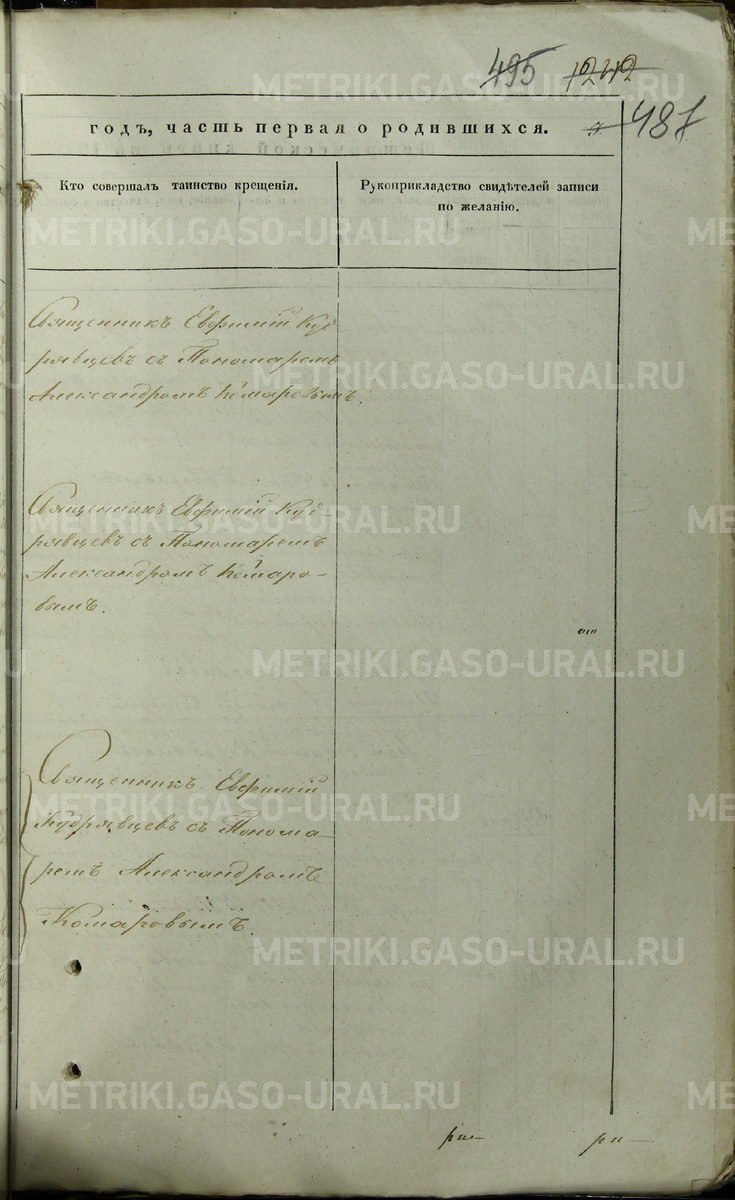 495 1242
годъ, часть первая о родившихся. 487
Кто совершалъ таинство крещенія.
Рукоприкладство свидѣтелей записи
по желанію.
Священникъ Евфимій Куд
рявцевъ съ Пономаремъ
Александромъ Комаровымъ.
Священникъ Евфимій Куд-
рявцевъ съ Пономаремъ
Александромъ Комаро-
вымъ.
Священникъ Евфимій
Кудрявцевъ съ Понома-
ремъ Александромъ
Комаровымъ.
METRIKI.GASO-URAL.RU
METRIKI.GASO-URAL.RU
METRIKI.GASO-URAL.RU
METRIKI.GASO-URAL.RU
METRIKI.GASO-URAL.RU
METRIKI.GASO-URAL.RU
METRIKI.GASO-URAL.RU
METRIKI.GASO-URAL.RU